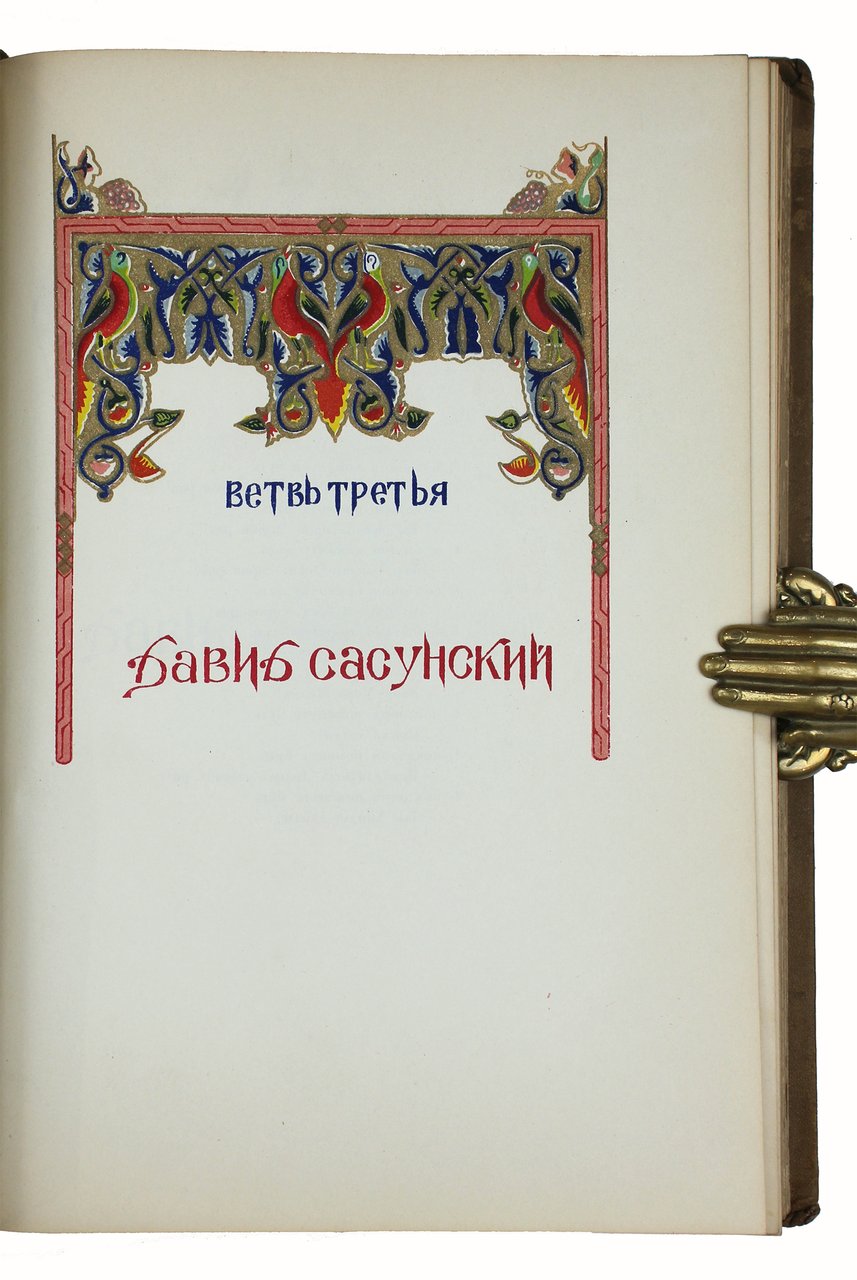 ветвь третья
давид сасунский